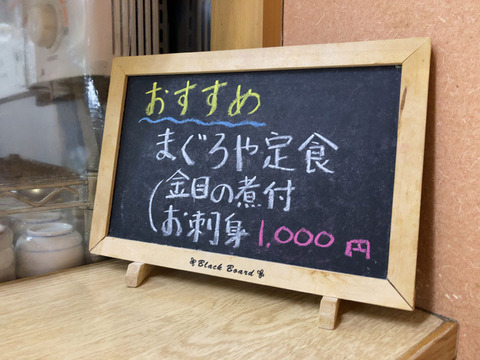 おすすめ
まぐろや定食
(金目の煮付
お刺身 1,000円
Black Board